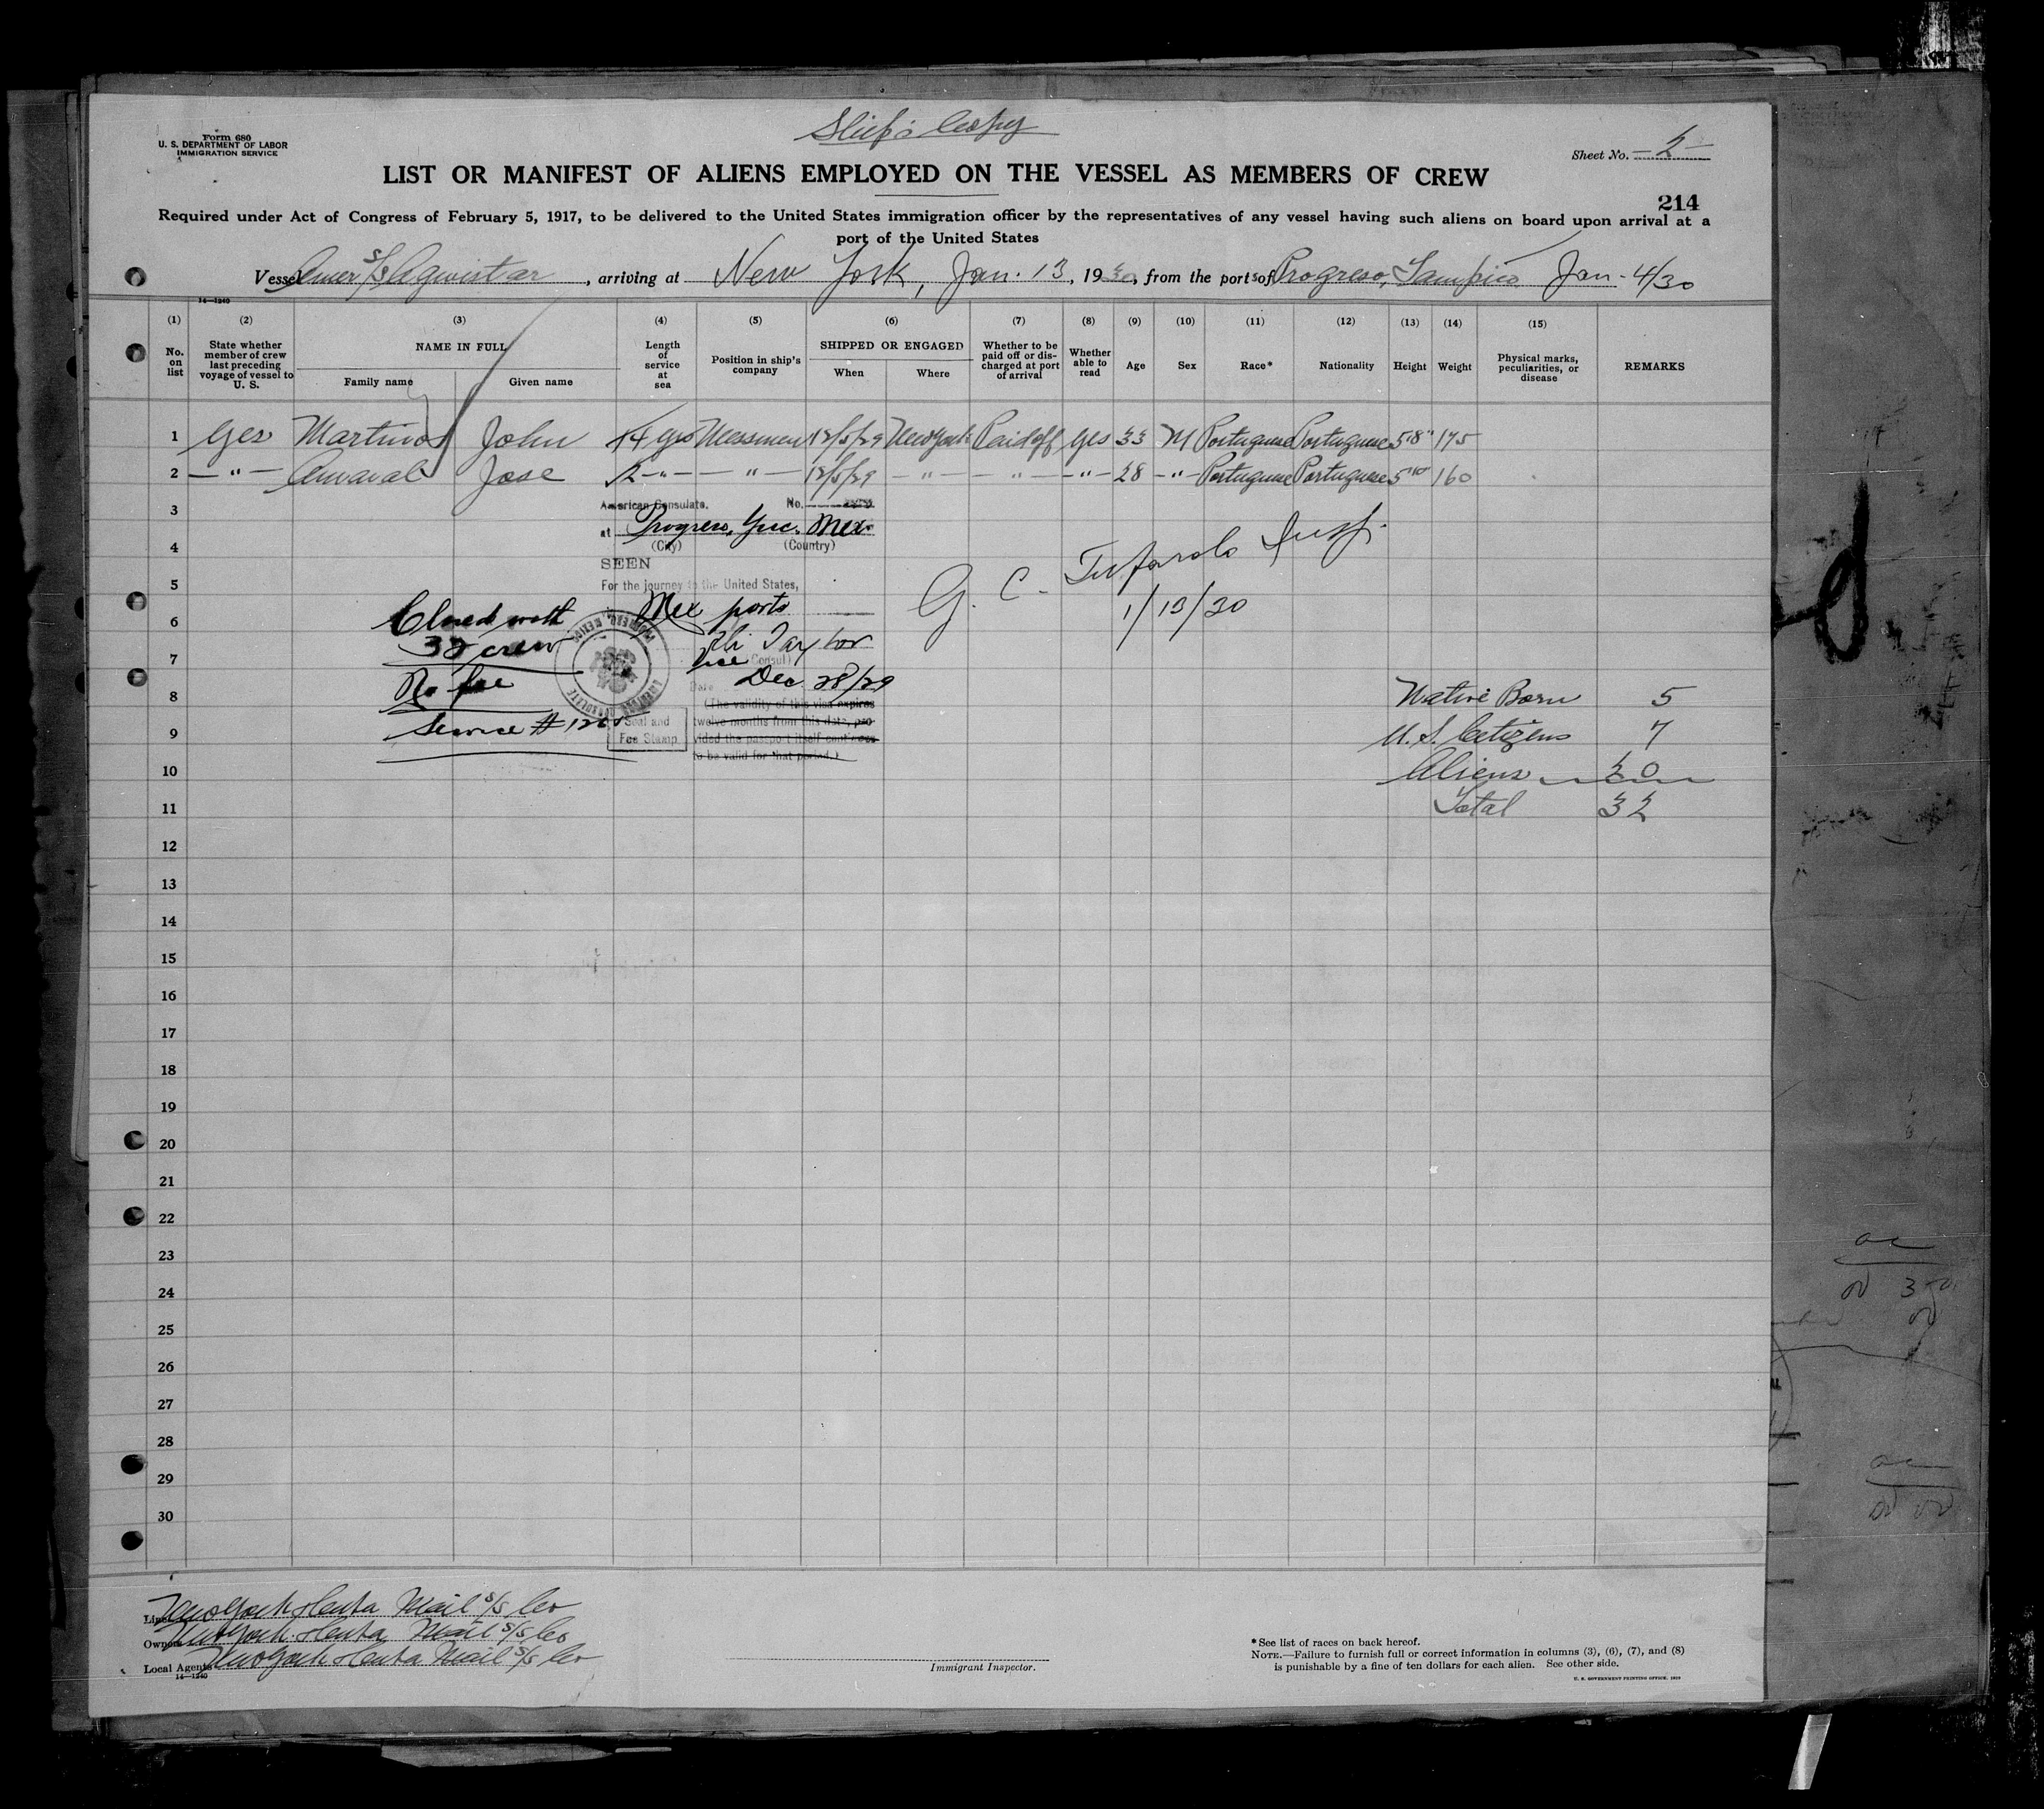 Ship's Copy
Form 680
U. S. DEPARTMENT OF LABOR
IMMIGRATION SERVICE
Sheet No. -2-
LIST OR MANIFEST OF ALIENS EMPLOYED ON THE VESSEL AS MEMBERS OF CREW
214
Required under Act of Congress of February 5, 1917, to be delivered to the United States immigration officer by the representatives of any vessel having such aliens on board upon arrival at a
port of the United States
Vessel Amer S/S Agwistar, arriving at New York, Jan. 13, 1930, from the ports of Progreso, Tampico Jan - 4/30
14—1240
(1) (2) (3) (4) (5) (6) (7) (8) (9) (10) (11) (12) (13) (14) (15)
No. on list State whether member of crew last preceding voyage of vessel to U. S. NAME IN FULL Family name Given name Length of service at sea Position in ship's company SHIPPED OR ENGAGED When Where Whether to be paid off or discharged at port of arrival Whether able to read Age Sex Race* Nationality Height Weight Physical marks, peculiarities, or disease REMARKS
1 Yes Martinos John 14 yrs Messmen 12/5/29 New York Paid off yes 33 M Portuguese Portuguese 5'8" 175
2 —"— Jose 2 —"— —"— 12/5/29 —"— —"— —"— 28 —"— Portuguese Portuguese 5'10" 160
3
American Consulate, No.
at Progreso, Yuc. Mex.
(City) (Country)
4
SEEN
5
For the journey to the United States,
Mex ports
6
Closed with
32 crew
7
Taylor
Vice Consul
No fee
8
Date Dec 28/29
(The validity of this visa expires
twelve months from this date, pro-
vided the passport itself continues
to be valid for that period.)
Service #
Seal and
Fee Stamp
9
G. C. Insp.
1/13/30
Native Born 5
U. S. Citizens 7
Aliens 20
Total 32
10
11
12
13
14
15
16
17
18
19
20
21
22
23
24
25
26
27
28
29
30
Line New York & Cuba Mail S/S Co
Owners New York & Cuba Mail S/S Co
Local Agents New York & Cuba Mail S/S Co
14—1240
Immigrant Inspector.
* See list of races on back hereof.
NOTE.—Failure to furnish full or correct information in columns (3), (6), (7), and (8)
is punishable by a fine of ten dollars for each alien. See other side.
U. S. GOVERNMENT PRINTING OFFICE: 1929